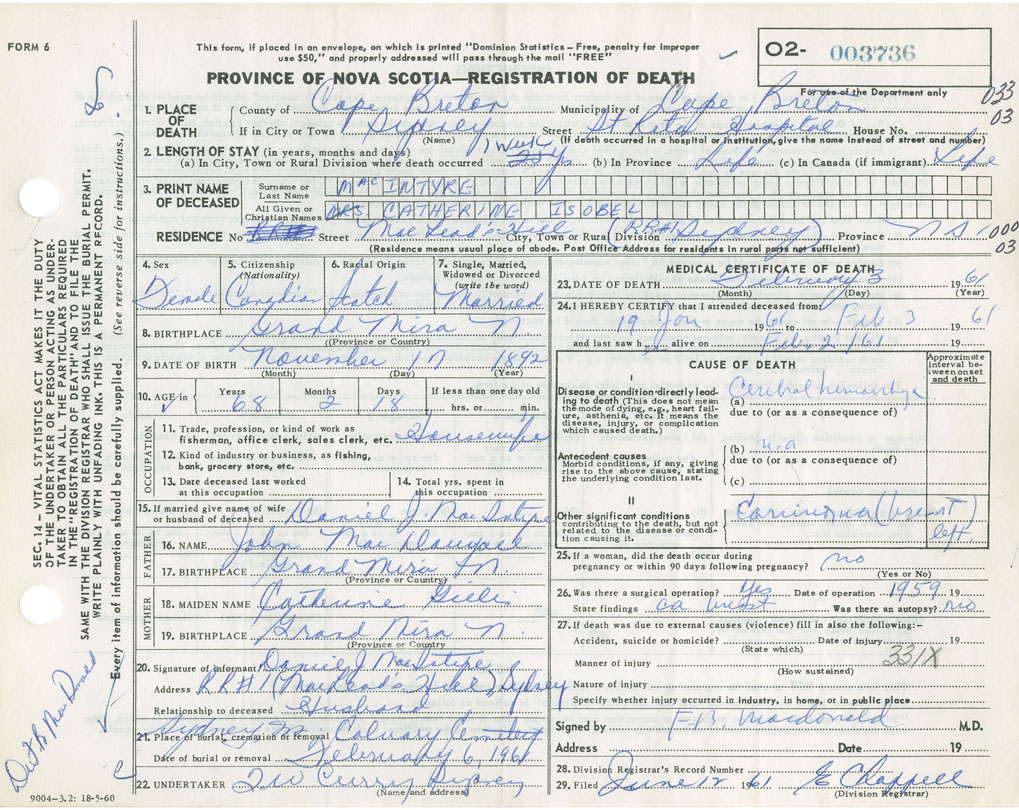 FORM 6
This form, if placed in an envelope, on which is printed "Dominion Statistics – Free, penalty for improper
use $50," and properly addressed will pass through the mail "FREE"
O2- 003736
For use of the Department only
PROVINCE OF NOVA SCOTIA—REGISTRATION OF DEATH
033
03
1. PLACE OF DEATH County of Cape Breton Municipality of Cape Breton
If in City or Town Sydney Street St Rita Hospital House No.
(Name) (If death occurred in a hospital or institution, give the name instead of street and number)
2. LENGTH OF STAY (in years, months and days) 1 week
(a) In City, Town or Rural Division where death occurred (b) In Province Life (c) In Canada (if immigrant) Life
3. PRINT NAME OF DECEASED Surname or Last Name MacINTYRE
All Given or Christian Names MRS. CATHERINE ISOBEL
RESIDENCE No RR#1 Street MacLead's Hill City, Town or Rural Division (RR#1 Sydney) Province N S
(Residence means usual place of abode. Post Office Address for residents in rural parts not sufficient)
000
03
4. Sex Female
5. Citizenship (Nationality) Canadian
6. Racial Origin Scotch
7. Single, Married, Widowed or Divorced (write the word) Married
8. BIRTHPLACE Grand Mira N
(Province or Country)
9. DATE OF BIRTH November 17 1892
(Month) (Day) (Year)
10. AGE in Years 68 Months 2 Days 18 If less than one day old hrs. or min.
OCCUPATION
11. Trade, profession, or kind of work as fisherman, office clerk, sales clerk, etc. Housewife
12. Kind of industry or business, as fishing, bank, grocery store, etc.
13. Date deceased last worked at this occupation
14. Total yrs. spent in this occupation
15. If married give name of wife or husband of deceased Daniel J. MacIntyre
FATHER
16. NAME John MacDougall
17. BIRTHPLACE Grand Mira N.
(Province or Country)
MOTHER
18. MAIDEN NAME Catherine Gillis
19. BIRTHPLACE Grand Mira N.
(Province or Country)
20. Signature of informant Daniel J. MacIntyre
Address RR#1 (MacLead's Hill) Sydney
Relationship to deceased Husband
Sydney
21. Place of burial, cremation or removal Calvary Cemetery
Date of burial or removal February 6, 1961
22. UNDERTAKER T W Curry Sydney
(Name and address)
9004–3.2: 18-5-60
MEDICAL CERTIFICATE OF DEATH
23. DATE OF DEATH February 3 1961
(Month) (Day) (Year)
24. I HEREBY CERTIFY that I attended deceased from
19 Jan 1961 to Feb 3 1961
and last saw h alive on Feb. 2 /61 19
CAUSE OF DEATH
Approximate interval between onset and death
I
Disease or condition directly leading to death (This does not mean the mode of dying, e.g., heart failure, asthenia, etc. It means the disease, injury, or complication which caused death.)
(a) Cerebral hemorrhage
due to (or as a consequence of)
Antecedent causes
Morbid conditions, if any, giving rise to the above cause, stating the underlying condition last.
(b) n.a
due to (or as a consequence of)
(c)
II
Other significant conditions
contributing to the death, but not related to the disease or condition causing it.
Carcinoma (breast) left
25. If a woman, did the death occur during pregnancy or within 90 days following pregnancy? no
(Yes or No)
26. Was there a surgical operation? Yes Date of operation 1959 19
State findings ca breast Was there an autopsy? no
27. If death was due to external causes (violence) fill in also the following:-
Accident, suicide or homicide? Date of injury 19
(State which)
331X
Manner of injury
(How sustained)
Nature of injury
Specify whether injury occurred in industry, in home, or in public place
Signed by F B Macdonald M.D.
Address Date 19
28. Division Registrar's Record Number
29. Filed June 12 1961 E Chappell
(Division Registrar)
SEC. 14 – VITAL STATISTICS ACT MAKES IT THE DUTY
OF THE UNDERTAKER OR PERSON ACTING AS UNDER-
TAKER TO OBTAIN ALL THE PARTICULARS REQUIRED
IN THE "REGISTRATION OF DEATH" AND TO FILE THE
SAME WITH THE DIVISION REGISTRAR WHO SHALL ISSUE THE BURIAL PERMIT.
WRITE PLAINLY WITH UNFADING INK. THIS IS A PERMANENT RECORD.
Every item of information should be carefully supplied. (See reverse side for instructions.)